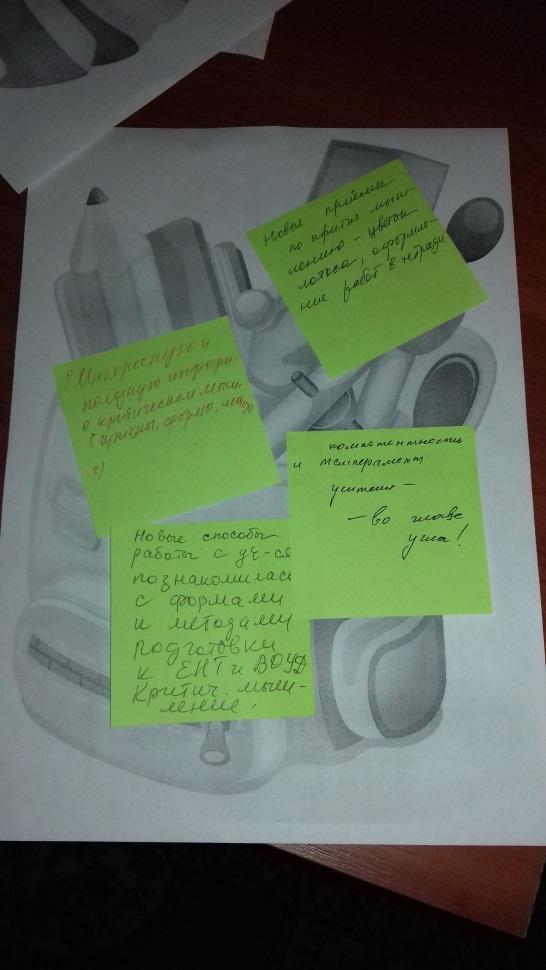 Новые приёмы
по критич. мыш-
лению - цветок
лотоса, оформле-
ние работ в тетради.
1) Интересную и
полезную информ
о критическом мыш.
(приёмы, формы, метод
2)
компетентность
и темперамент
учителя -
- во главе
угла!
Новые способы
работы с уч-ся
познакомилась
с формами
и методами
подготовки
к ЕНТ и ВОУД
Критич. мыш-
ление.